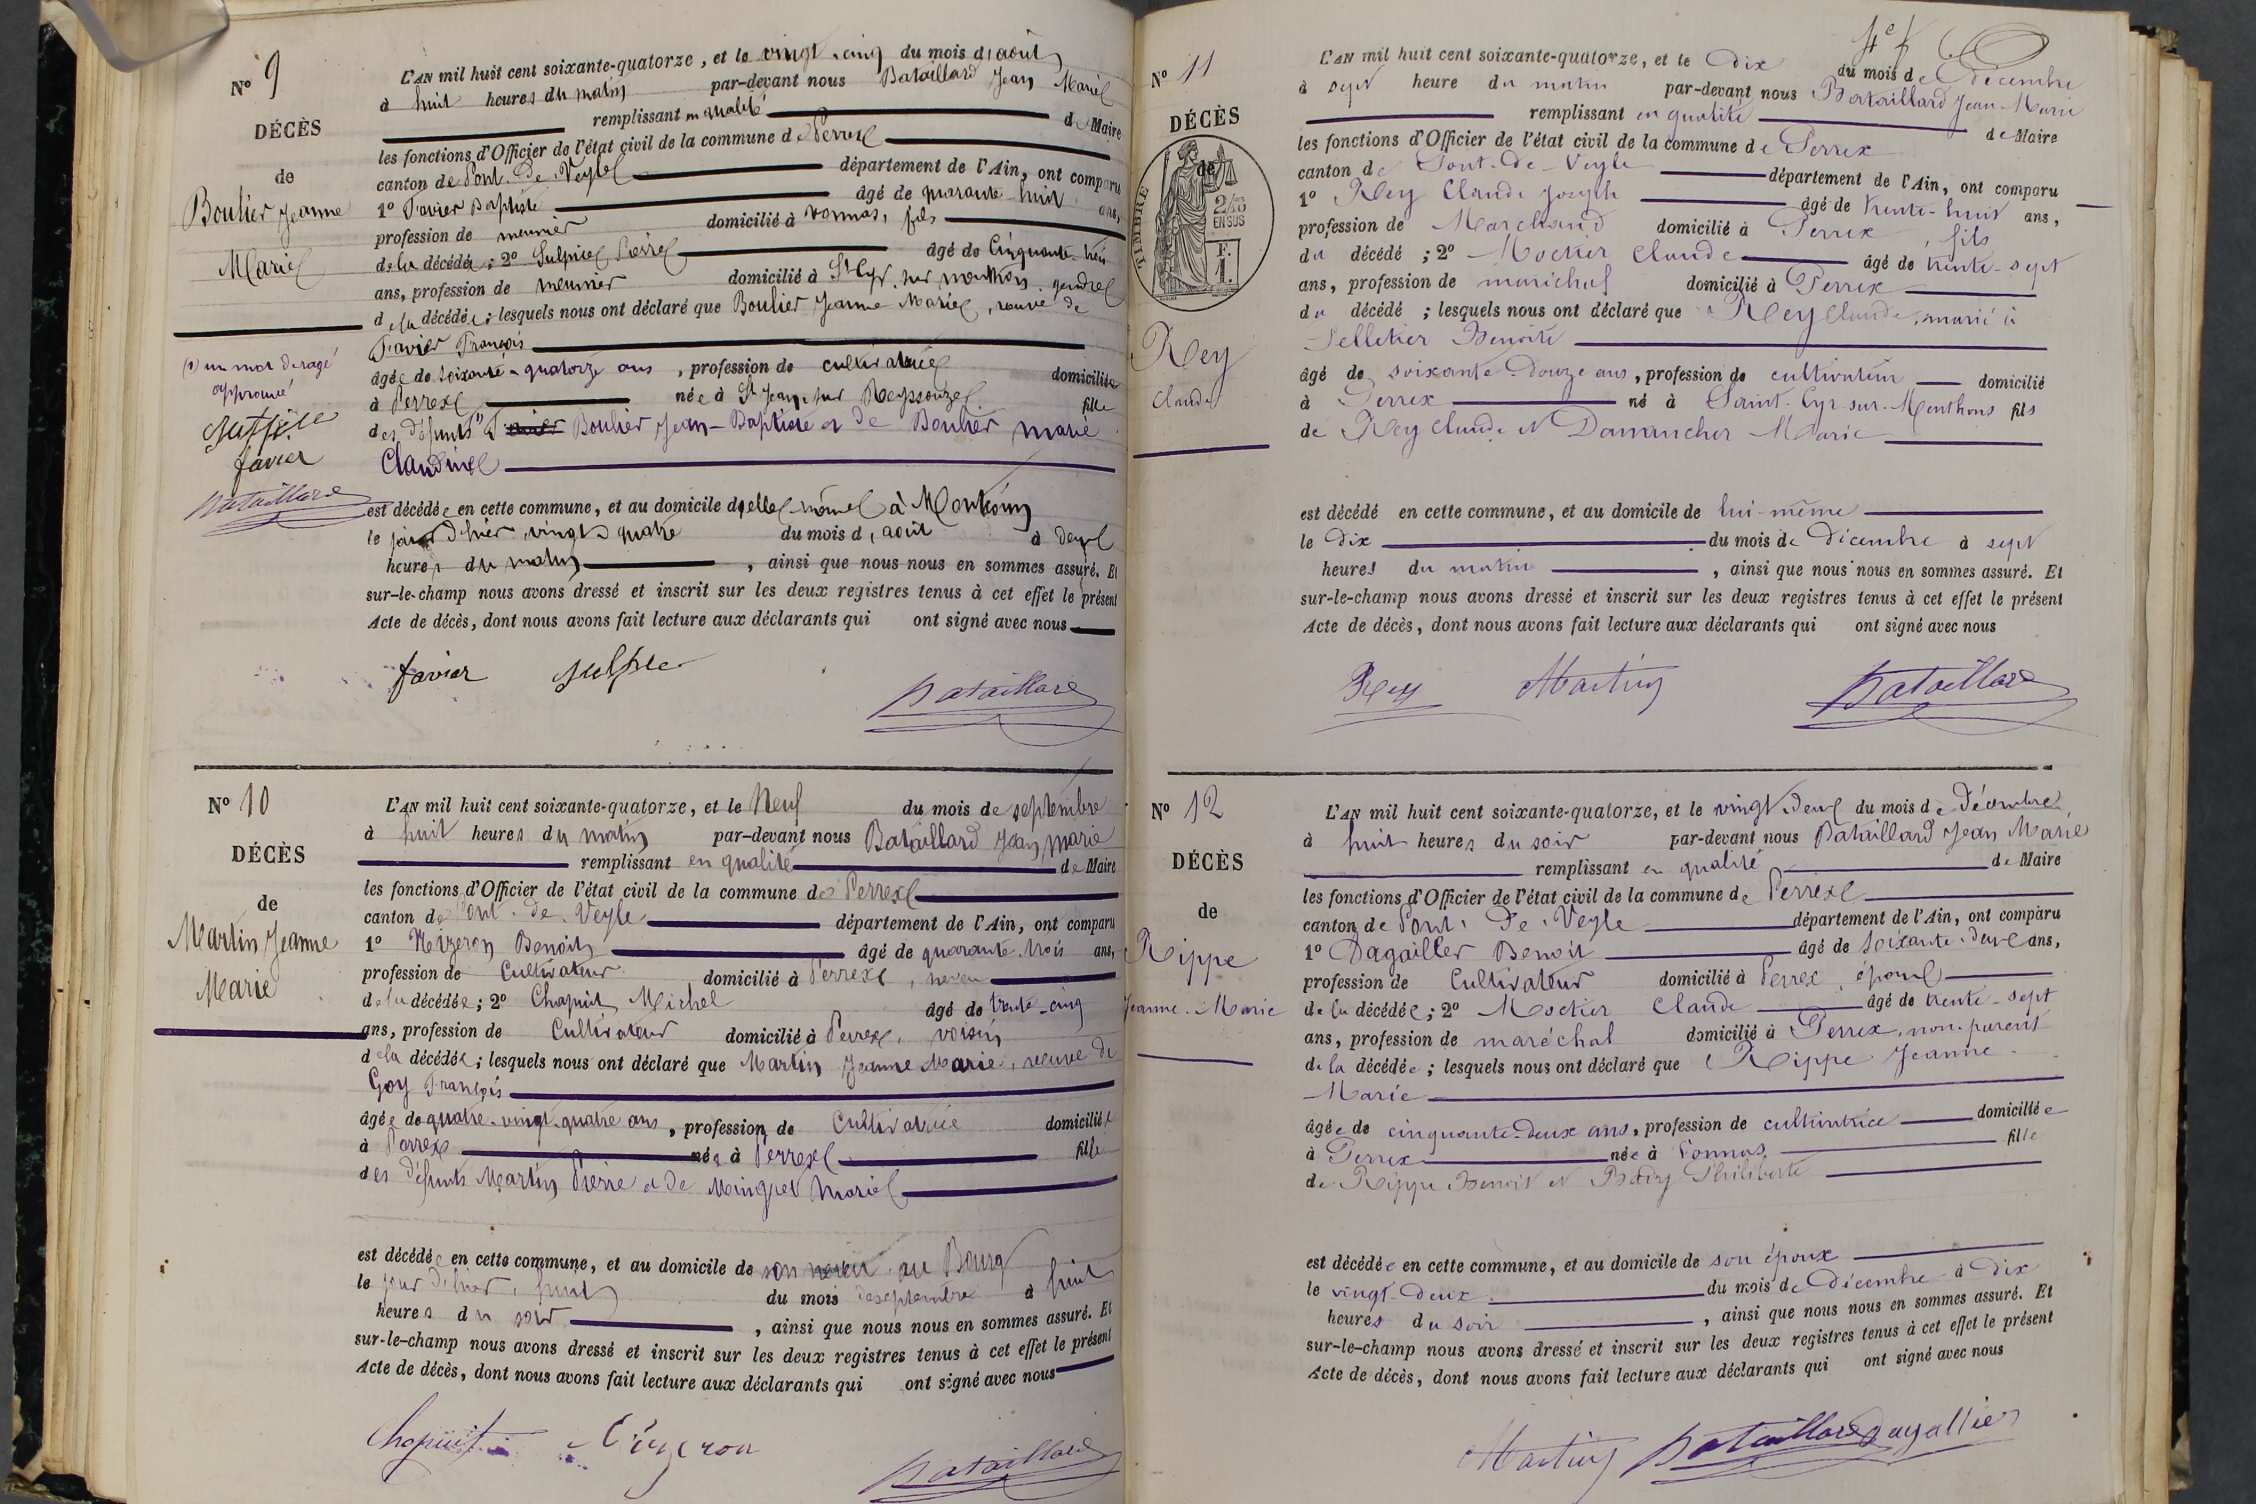 Nº 9
DÉCÈS
de
Boulier Jeanne
Marie
(1) un mot de rayé
approuvé
Sulpice
favier
Bataillard
L'AN mil huit cent soixante-quatorze, et le vingt-cinq du mois d'août
à huit heures du matin par-devant nous Bataillard Jean Marie
remplissant en qualité de Maire
les fonctions d'Officier de l'état civil de la commune de Perrex
canton de Pont-de-Veyle département de l'Ain, ont comparu
1º Favier Baptiste âgé de quarante-huit ans,
profession de meunier domicilié à Vonnas, fils
de la décédée; 2º Sulpice Pierre âgé de Cinquante-trois
ans, profession de meunier domicilié à St Cyr sur menthon, gendre
de la décédée; lesquels nous ont déclaré que Boulier Jeanne Marie, veuve de
Favier François
âgée de soixante-quatorze ans, profession de cultivatrice domiciliée
à Perrex née à St Jean sur Reyssouze fille
des défunts (1) Boulier Jean-Baptiste et de Boulier marie
Claudine
est décédée en cette commune, et au domicile d'elle même à Montcoin
le jour d'hier, vingt-quatre du mois d'août à deux
heures du matin, ainsi que nous nous en sommes assuré. Et
sur-le-champ nous avons dressé et inscrit sur les deux registres tenus à cet effet le présent
Acte de décès, dont nous avons fait lecture aux déclarants qui ont signé avec nous
favier Sulpice
Bataillard
Nº 10
DÉCÈS
de
Martin Jeanne
Marie
L'AN mil huit cent soixante-quatorze, et le Neuf du mois de septembre
à huit heures du matin par-devant nous Bataillard Jean marie
remplissant en qualité de Maire
les fonctions d'Officier de l'état civil de la commune de Perrex
canton de Pont-de-Veyle département de l'Ain, ont comparu
1º Nizeron Benoit âgé de quarante-trois ans,
profession de Cultivateur domicilié à Perrex, neveu
de la décédée; 2º Chapuit Michel âgé de trente-cinq
ans, profession de Cultivateur domicilié à Perrex, voisin
de la décédée; lesquels nous ont déclaré que Martin Jeanne Marie, veuve de
Goy François
âgée de quatre-vingt-quatre ans, profession de Cultivatrice domiciliée
à Perrex née à Perrex fille
des défunts Martin Pierre et de Minguet Marie
est décédée en cette commune, et au domicile de son neveu au Bourg
le jour d'hier, huit du mois de septembre à huit
heures du soir, ainsi que nous nous en sommes assuré. Et
sur-le-champ nous avons dressé et inscrit sur les deux registres tenus à cet effet le présent
Acte de décès, dont nous avons fait lecture aux déclarants qui ont signé avec nous
Chapuit Nizeron
Bataillard
Nº 11
DÉCÈS
de
TIMBRE
2/10es
EN SUS
F.
1.
Rey
Claude
4e f
L'AN mil huit cent soixante-quatorze, et le dix du mois de décembre
à sept heure du matin par-devant nous Bataillard Jean-Marie
remplissant en qualité de Maire
les fonctions d'Officier de l'état civil de la commune de Perrex
canton de Pont-de-Veyle département de l'Ain, ont comparu
1º Rey Claude Joseph âgé de trente-huit ans,
profession de Marchand domicilié à Perrex, fils
du décédé; 2º Moctier Claude âgé de trente-sept
ans, profession de maréchal domicilié à Perrex
du décédé; lesquels nous ont déclaré que Rey Claude, marié à
Pelletier Benoite
âgé de soixante-douze ans, profession de cultivateur domicilié
à Perrex né à Saint-Cyr-sur-Menthons fils
de Rey Claude et Damancher Marie
est décédé en cette commune, et au domicile de lui-même
le dix du mois de décembre à sept
heures du matin, ainsi que nous nous en sommes assuré. Et
sur-le-champ nous avons dressé et inscrit sur les deux registres tenus à cet effet le présent
Acte de décès, dont nous avons fait lecture aux déclarants qui ont signé avec nous
Rey Bataillard
Nº 12
DÉCÈS
de
Rippe
Jeanne-Marie
L'AN mil huit cent soixante-quatorze, et le vingt-deux du mois de décembre
à huit heures du soir par-devant nous Bataillard Jean Marie
remplissant en qualité de Maire
les fonctions d'Officier de l'état civil de la commune de Perrex
canton de Pont-de-Veyle département de l'Ain, ont comparu
1º Dagailler Benoit âgé de soixante-deux ans,
profession de Cultivateur domicilié à Perrex, époux
de la décédée; 2º Moctier Claude âgé de trente-sept
ans, profession de maréchal domicilié à Perrex, non-parent
de la décédée; lesquels nous ont déclaré que Rippe Jeanne-
Marie
âgée de cinquante-deux ans, profession de cultivatrice domiciliée
à Perrex née à Vonnas fille
de Rippe Benoit et Bady Philiberte
est décédée en cette commune, et au domicile de son époux
le vingt-deux du mois de décembre à dix
heures du soir, ainsi que nous nous en sommes assuré. Et
sur-le-champ nous avons dressé et inscrit sur les deux registres tenus à cet effet le présent
Acte de décès, dont nous avons fait lecture aux déclarants qui ont signé avec nous
Bataillard Dagallier